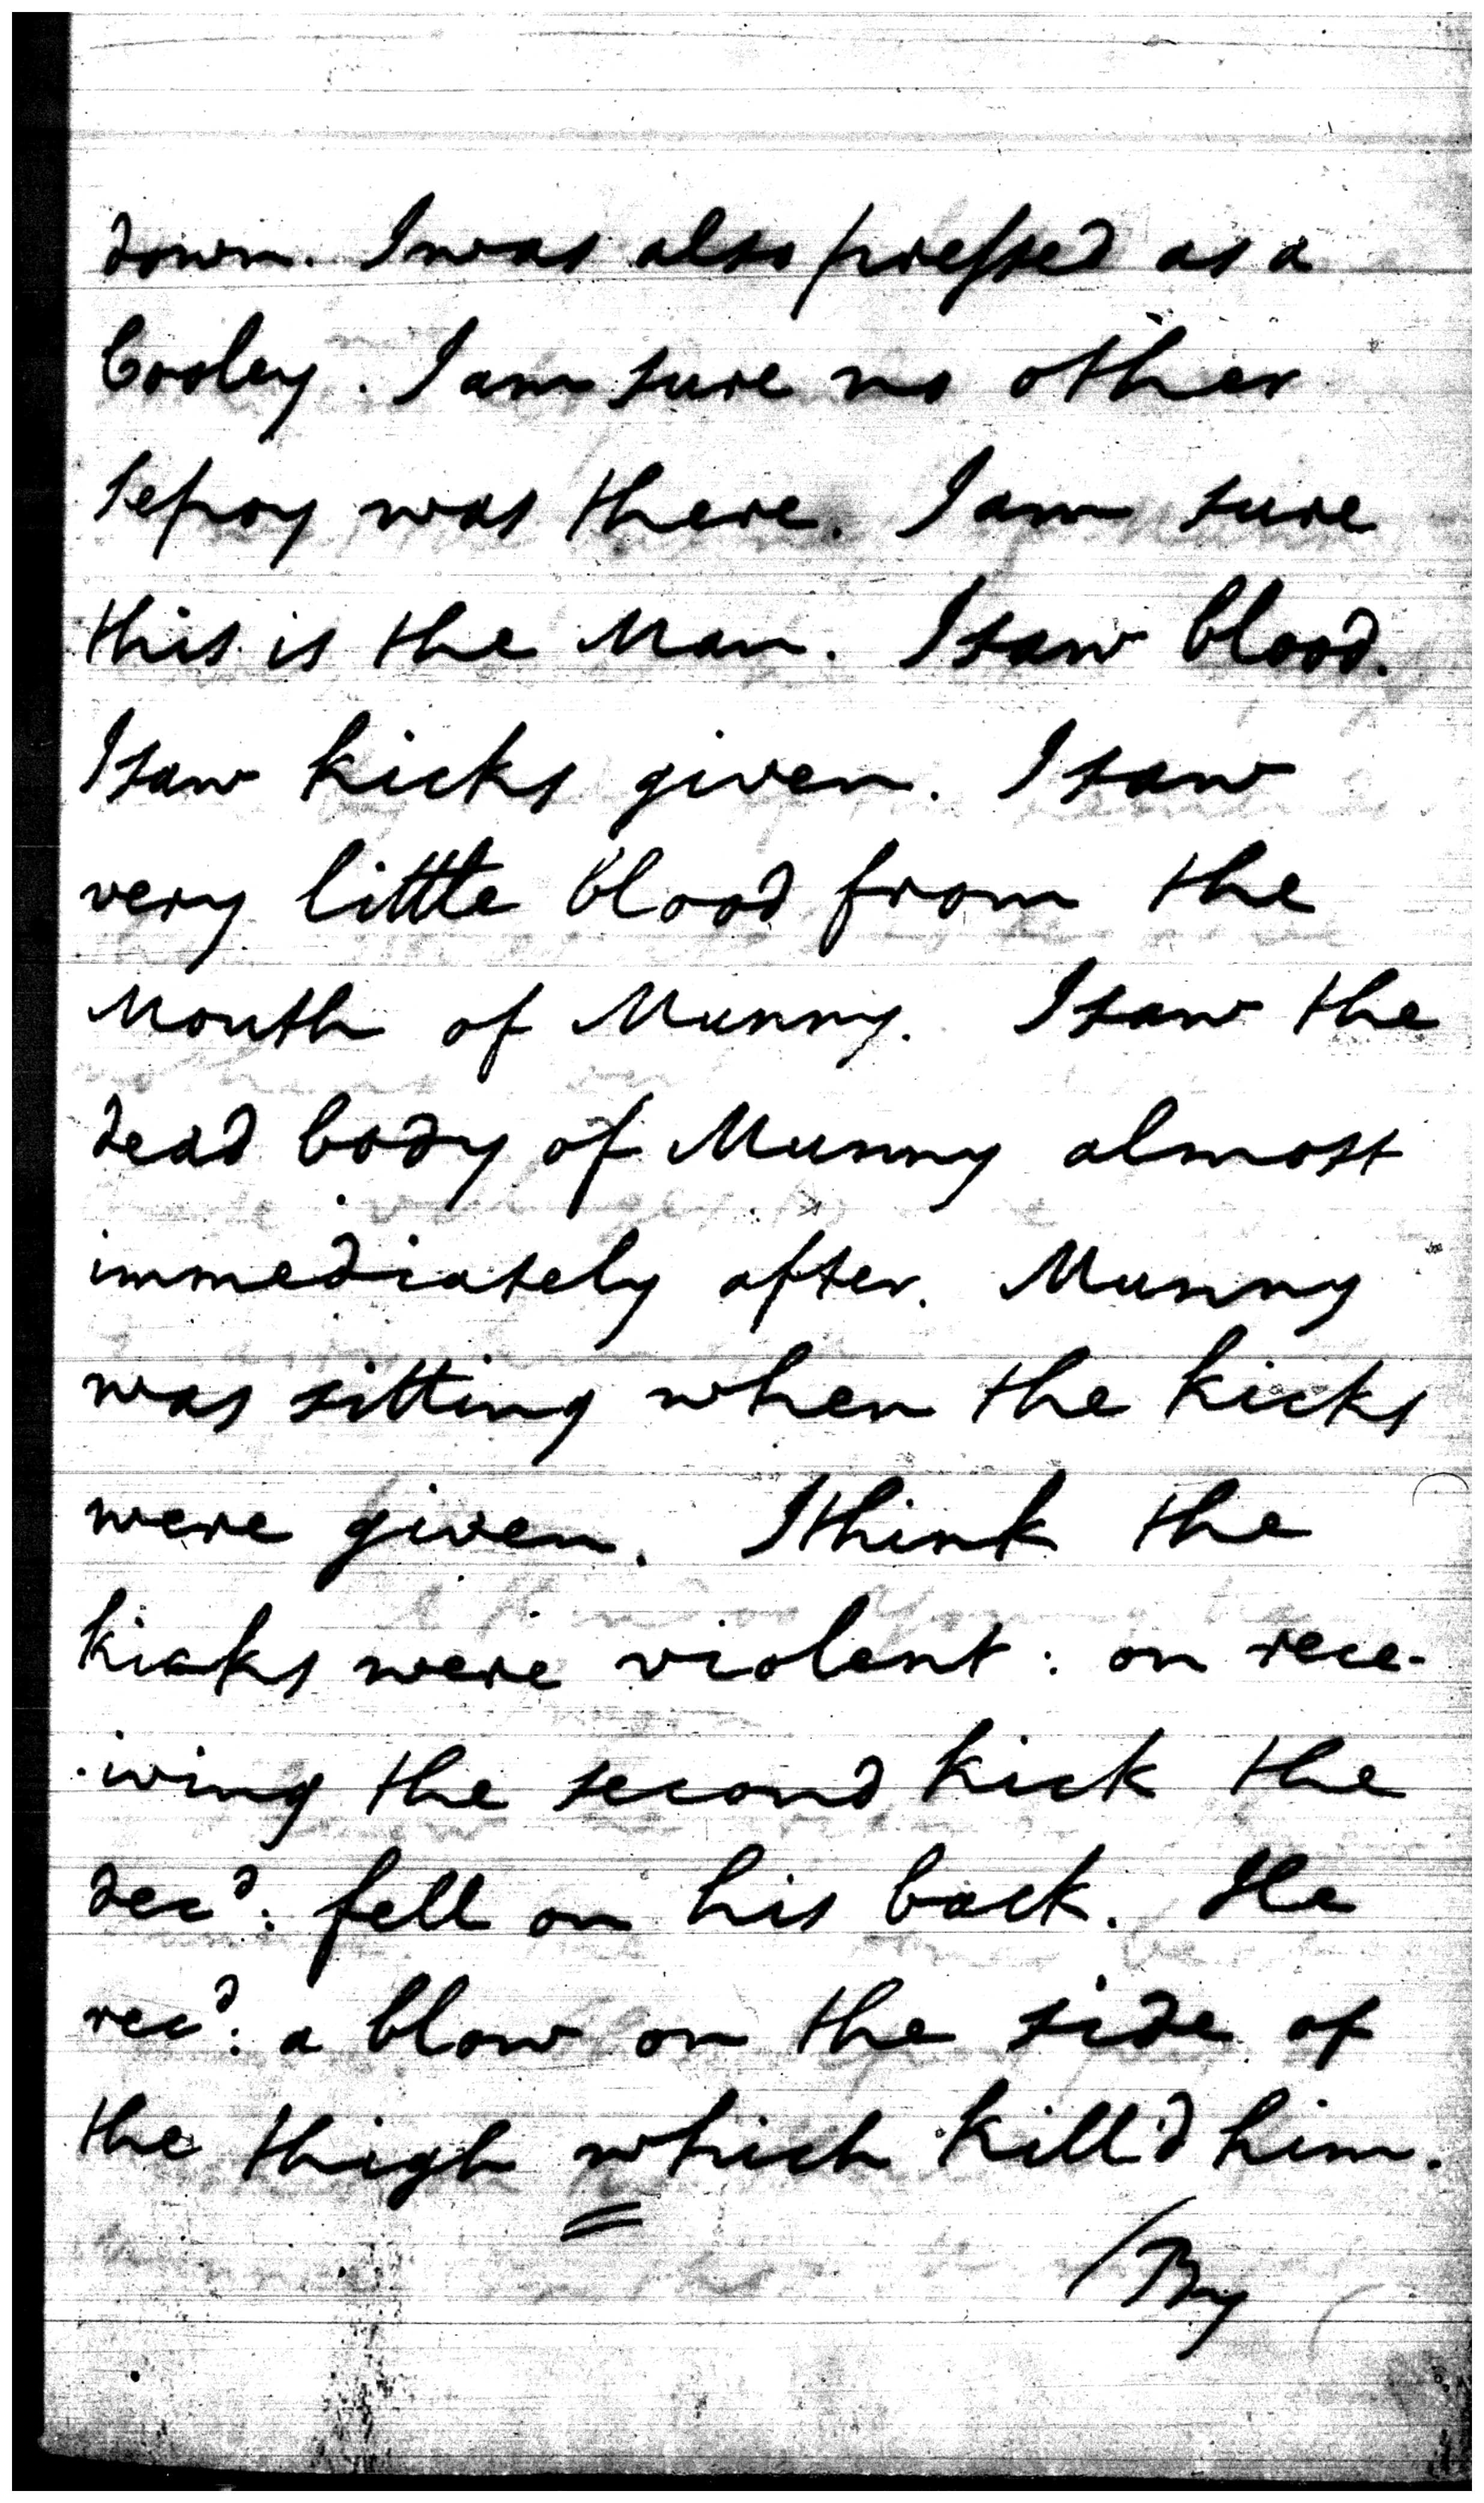 down. I was also pressed as a
Cooley. I am sure no other
Sepoy was there. I am sure
this is the Man. I saw blood.
I saw kicks given. I saw
very little blood from the
Mouth of Munny. I saw the
dead body of Munny almost
immediately after. Munny
was sitting when the kicks
were given. I think the
kicks were violent: on rece-
-iving the second kick the
decd: fell on his back. He
recd: a blow on the side of
the thigh which kill'd him.
/By